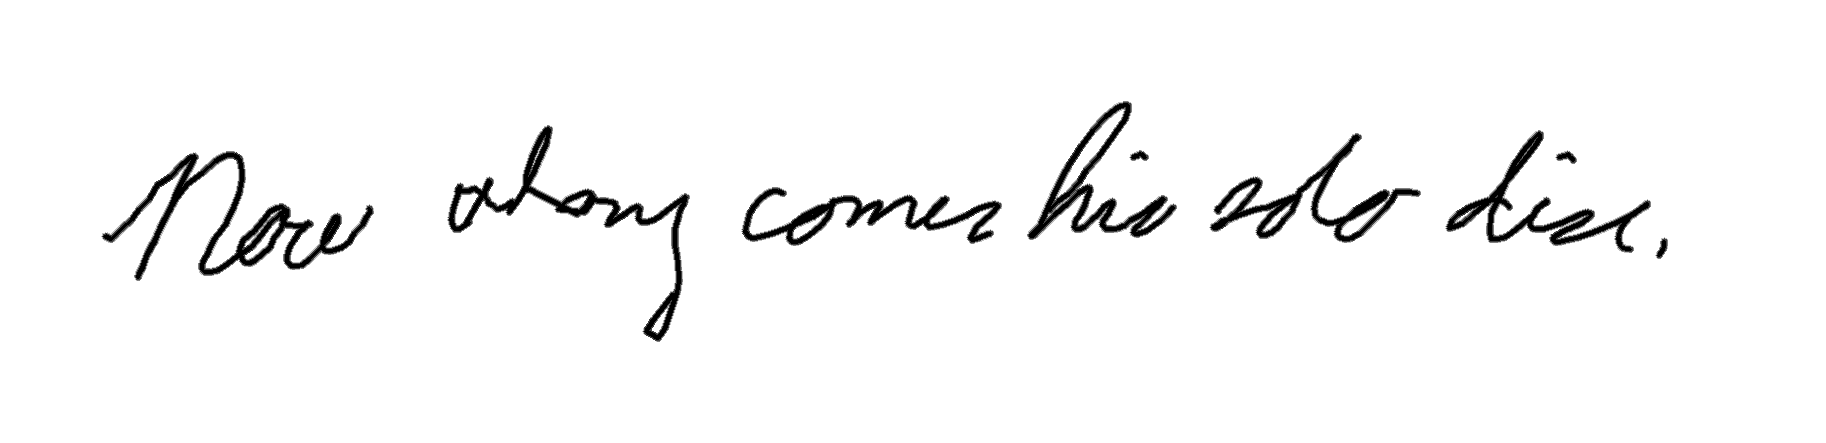 Now along comes his solo disc.